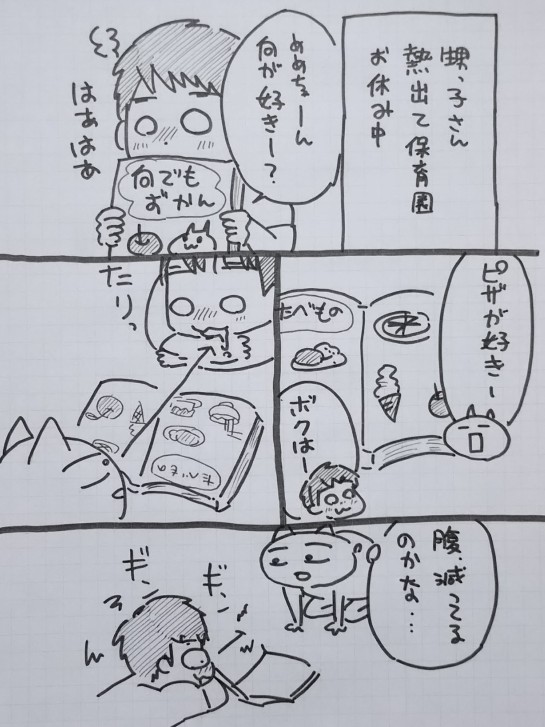 甥っ子さん
熱出て保育園
お休み中
めめちゃーん
何が好きー？
はぁはぁ
何でも
ずかん
ピザが好きー
たべもの
ボクはー
たりっ
たべもの
腹、減ってる
のかな…
ギンギン